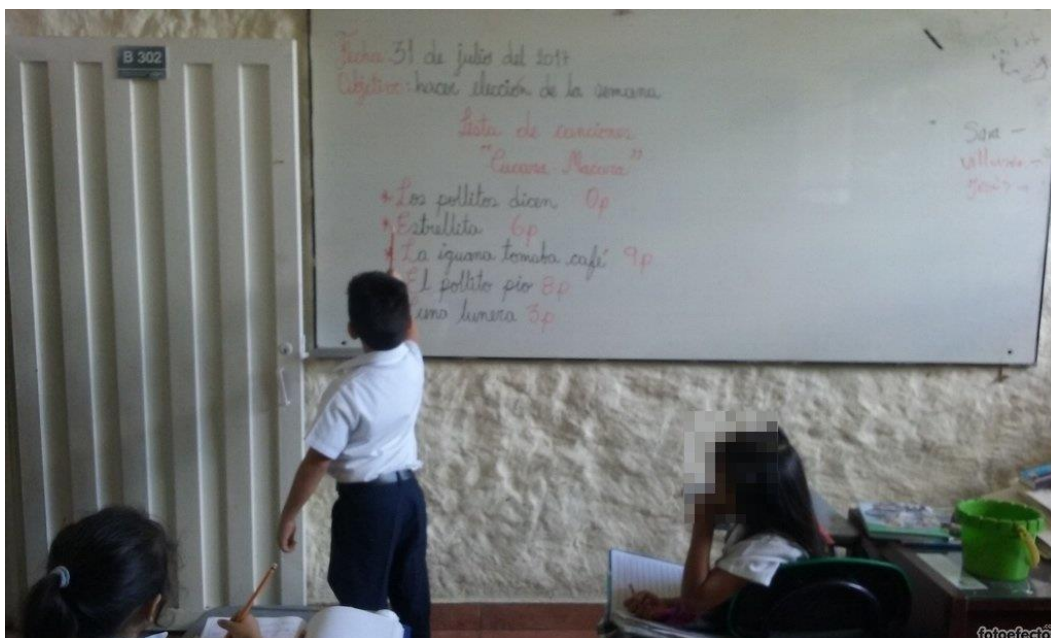 B 302
Fecha: 31 de julio del 2017
Objetivo: hacer elección de la semana
Lista de canciones
"Cucara Macara"
* Los pollitos dicen 0p
* Estrellita 6p
* La iguana tomaba café 9p
El pollito pio 8p
luna lunera 3p
Sara -
fotoefectos